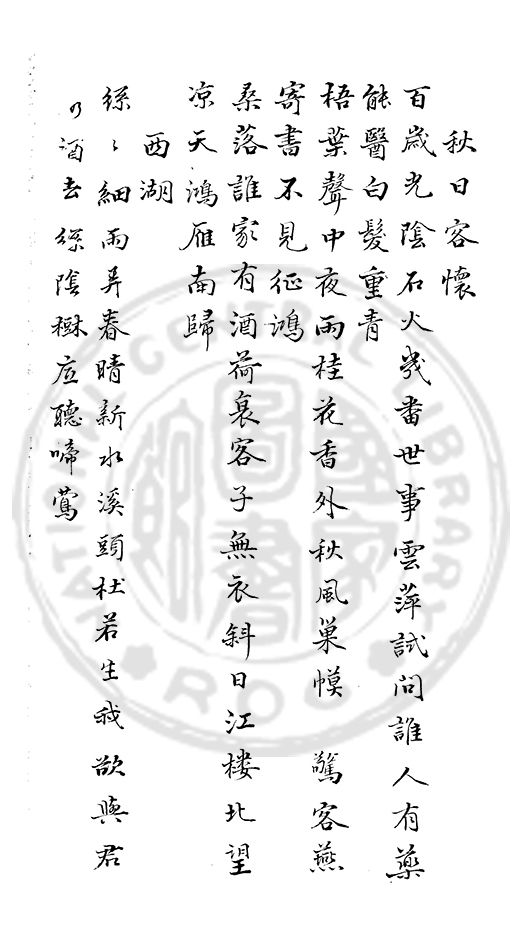 秋日客懷
百歲光陰石火幾番世事雲萍試問誰人有藥
能醫白髮重青
梧葉聲中夜雨桂花香外秋風巢幙驚客燕
寄書不見征鴻
桑落誰家有酒荷裒客子無衣斜日江楼北望
凉天鴻雁南歸
西湖
絲々細雨弄春晴新水溪頭杜若生我欲與君
乃酒去綠陰樹底聽啼鶯
NATIONAL CENTRAL LIBRARY
R.O.C.
國家圖書館